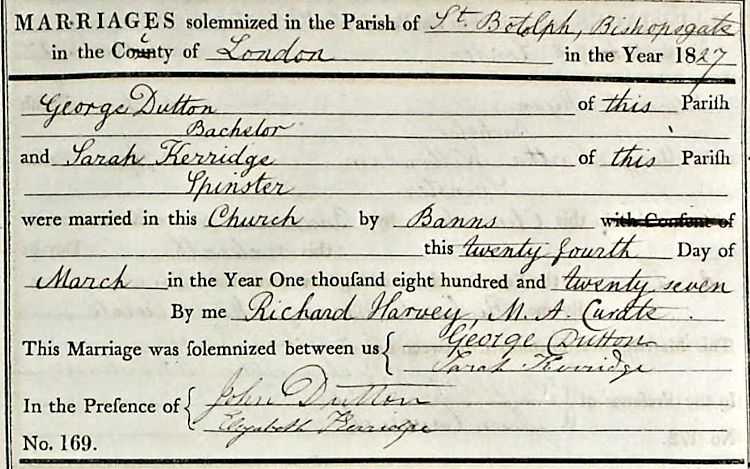 MARRIAGES solemnized in the Parish of St. Botolph, Bishopsgate
in the City of London in the Year 1827
George Dutton of this Parish
Bachelor
and Sarah Kerridge of this Parish
Spinster
were married in this Church by Banns with Consent of
this twenty fourth Day of
March in the Year One thousand eight hundred and twenty seven
By me Richard Harvey, M. A. Curate
This Marriage was solemnized between us { George Dutton
Sarah Kerridge
In the Presence of { John Dutton
Elizabeth Kerridge
No. 169.